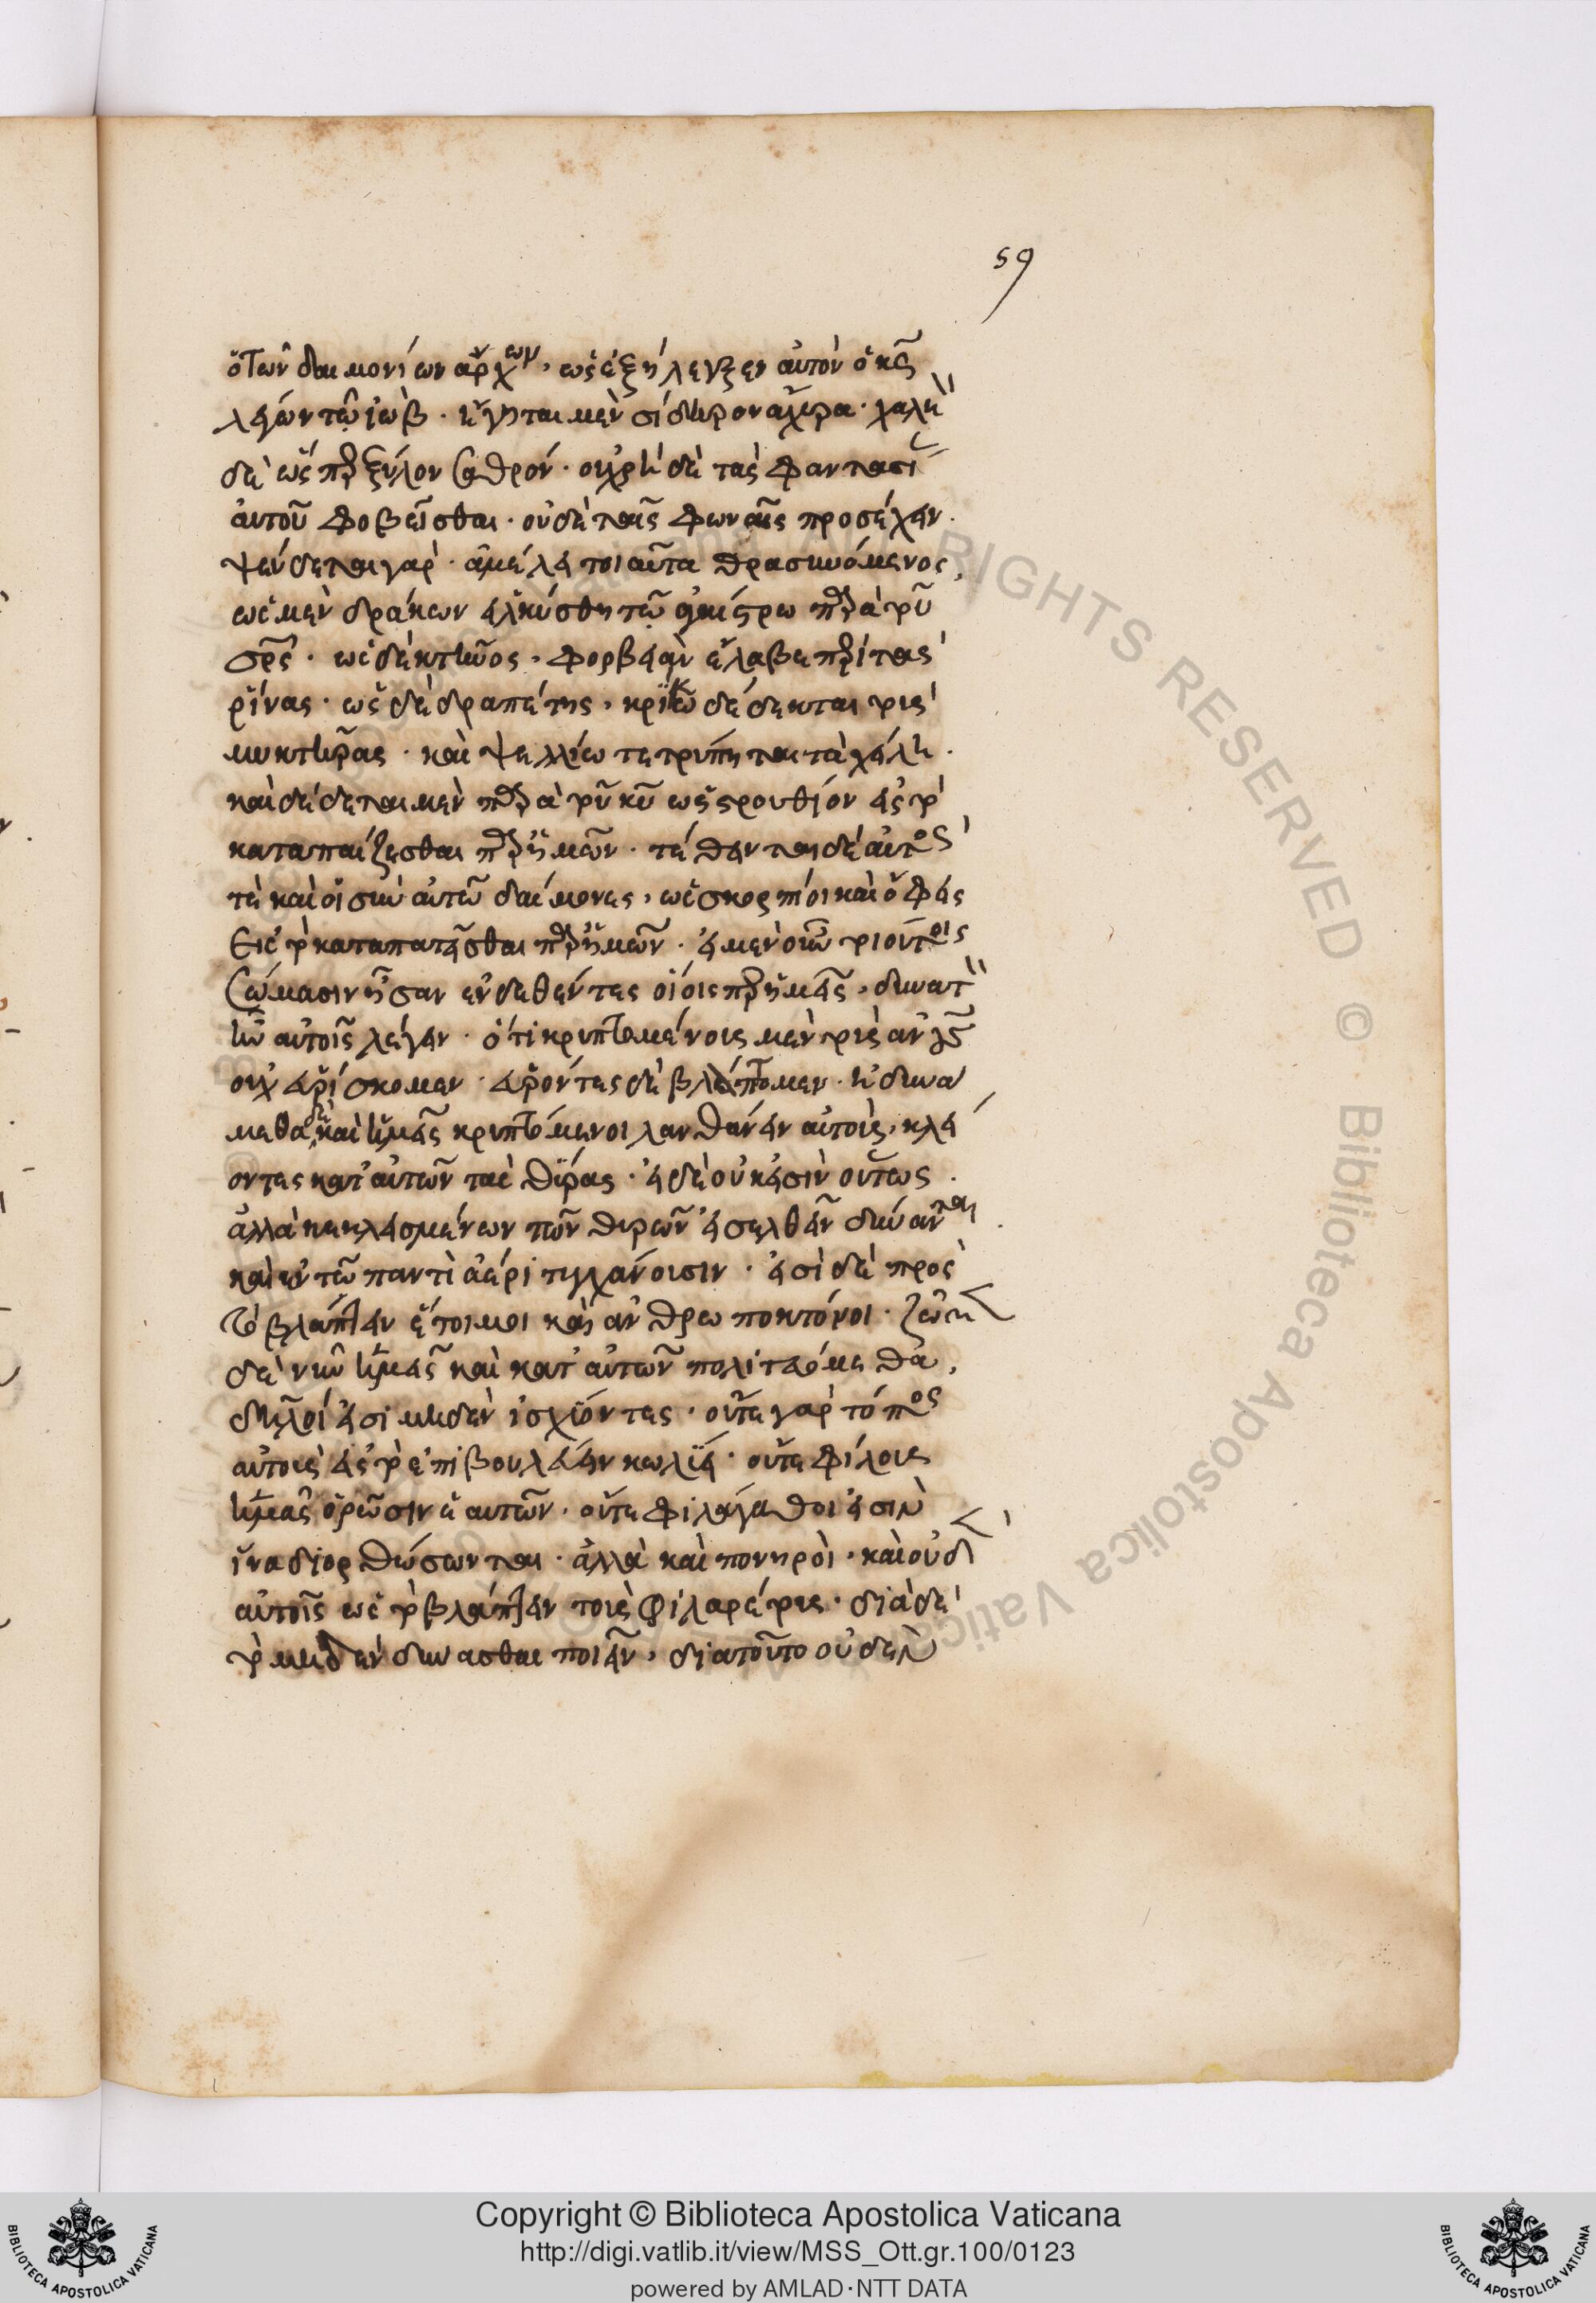 59
ὁ τῶν δαιμονίων ἄρχων. ὡς ἐξήλεγξεν αὐτὸν ὁ κς
λέγων τῷ ἰὼβ. ἥγηται μὲν σίδηρον ἄχυρα. χαλκ
δὲ ὡς ξύλον σαθρόν. οὐ χρὴ δὲ τὰς φαντασί
αὐτοῦ φοβεῖσθαι. οὐδὲ ταῖς φωναῖς προσέχειν.
ψεύδεται γὰρ. ἀμέλει τοιαῦτα θρασυνόμενος,
ὡς μὲν δράκων εἱλκύσθη τῷ ἀγκίστρω παρὰ τοῦ
σρς. ὡς δὲ κτῆνος. φορβειὰν ἔλαβε περὶ τὰς
ῥῖνας. ὡς δὲ δραπέτης. κρίκω δέδεκται τοὺς
μυκτῆρας. καὶ ψελλίω τετρύπηται τὰ χείλη.
καὶ δέδεται μὲν παρὰ τοῦ κυ ὡς στρουθίον εἰς τὸ
καταπαίζεσθαι παρ ἡμῶν. τέθειται δὲ αὐτός
τὲ καὶ οἱ σὺν αὐτῶ δαίμονες, ὡς σκορπίοι καὶ ὄφεις
εἰς τὸ καταπατεῖσθαι παρ ἡμῶν. εἰ μὲν οὖν τοιούτοις
σώμασιν ἦσαν ἐνδεθέντες οἵοις ἡμεῖς, δυνατ
ἦν αὐτοῖς λέγειν. ὅτι κρυπτομένους μὲν τοὺς ἀνους
οὐχ εὑρίσκομεν. εὑρόντες δὲ βλάπτομεν. ἠδυνά
μεθα δὲ καὶ ἡμεῖς κρυπτόμενοι λανθάνειν αὐτοὺς, κλεί
οντες κατ' αὐτῶν τὰς θύρας. εἰ δὲ οὐκ εἰσὶν οὕτως.
ἀλλὰ κεκλεισμένων τῶν θυρῶν εἰσελθεῖν δύνανται.
καὶ ἐν τῶ παντὶ ἀέρι τυγχάνουσιν. εἰσὶ δὲ πρὸς
τὸ βλάπτειν ἕτοιμοι καὶ ἀνθρωποκτόνοι. ζῶμεν
δὲ νῦν ἡμεῖς καὶ κατ' αὐτῶν πολιτευόμεθα,
δῆλοί εἰσι μηδὲν ἰσχύοντες. οὔτε γὰρ τόπος
αὐτοὺς εἰς τὸ ἐπιβουλεύειν κωλύει. οὔτε φίλους
ἡμᾶς ὁρῶσιν ἑαυτῶν. οὔτε φιλάγαθοί εἰσιν
ἵνα διορθώσωνται. ἀλλὰ καὶ πονηροὶ. καὶ οὐδ
αὐτοῖς ὡς τὸ βλάπτειν τοὺς φιλαρέτους. διὰ δὲ
τὸ μηδὲν δύνασθαι ποιεῖν, διατοῦτο οὐδὲν
RIGHTS RESERVED © Biblioteca Apostolica Vaticana
Copyright © Biblioteca Apostolica Vaticana
http://digi.vatlib.it/view/MSS_Ott.gr.100/0123
powered by AMLAD·NTT DATA
BIBLIOTECA APOSTOLICA VATICANA
BIBLIOTECA APOSTOLICA VATICANA